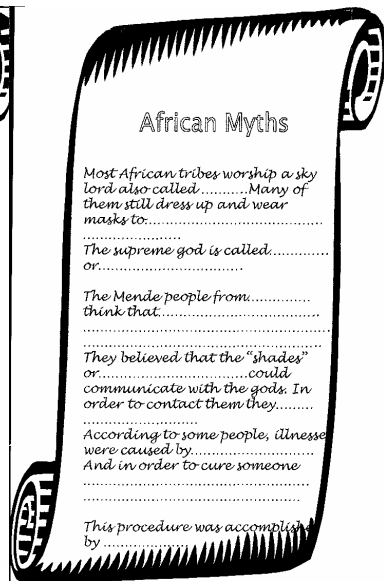 African Myths
Most African tribes worship a sky
lord also called...........Many of
them still dress up and wear
masks to........................................
......................
The supreme god is called.............
or................................
The Mende people from..............
think that....................................
........................................................
......................................................
They believed that the "shades"
or.................................could
communicate with the gods. In
order to contact them they.........
..........................
According to some people, illnesse
were caused by............................
And in order to cure someone
...................................................
.................................................
This procedure was accomplishe
by ...................